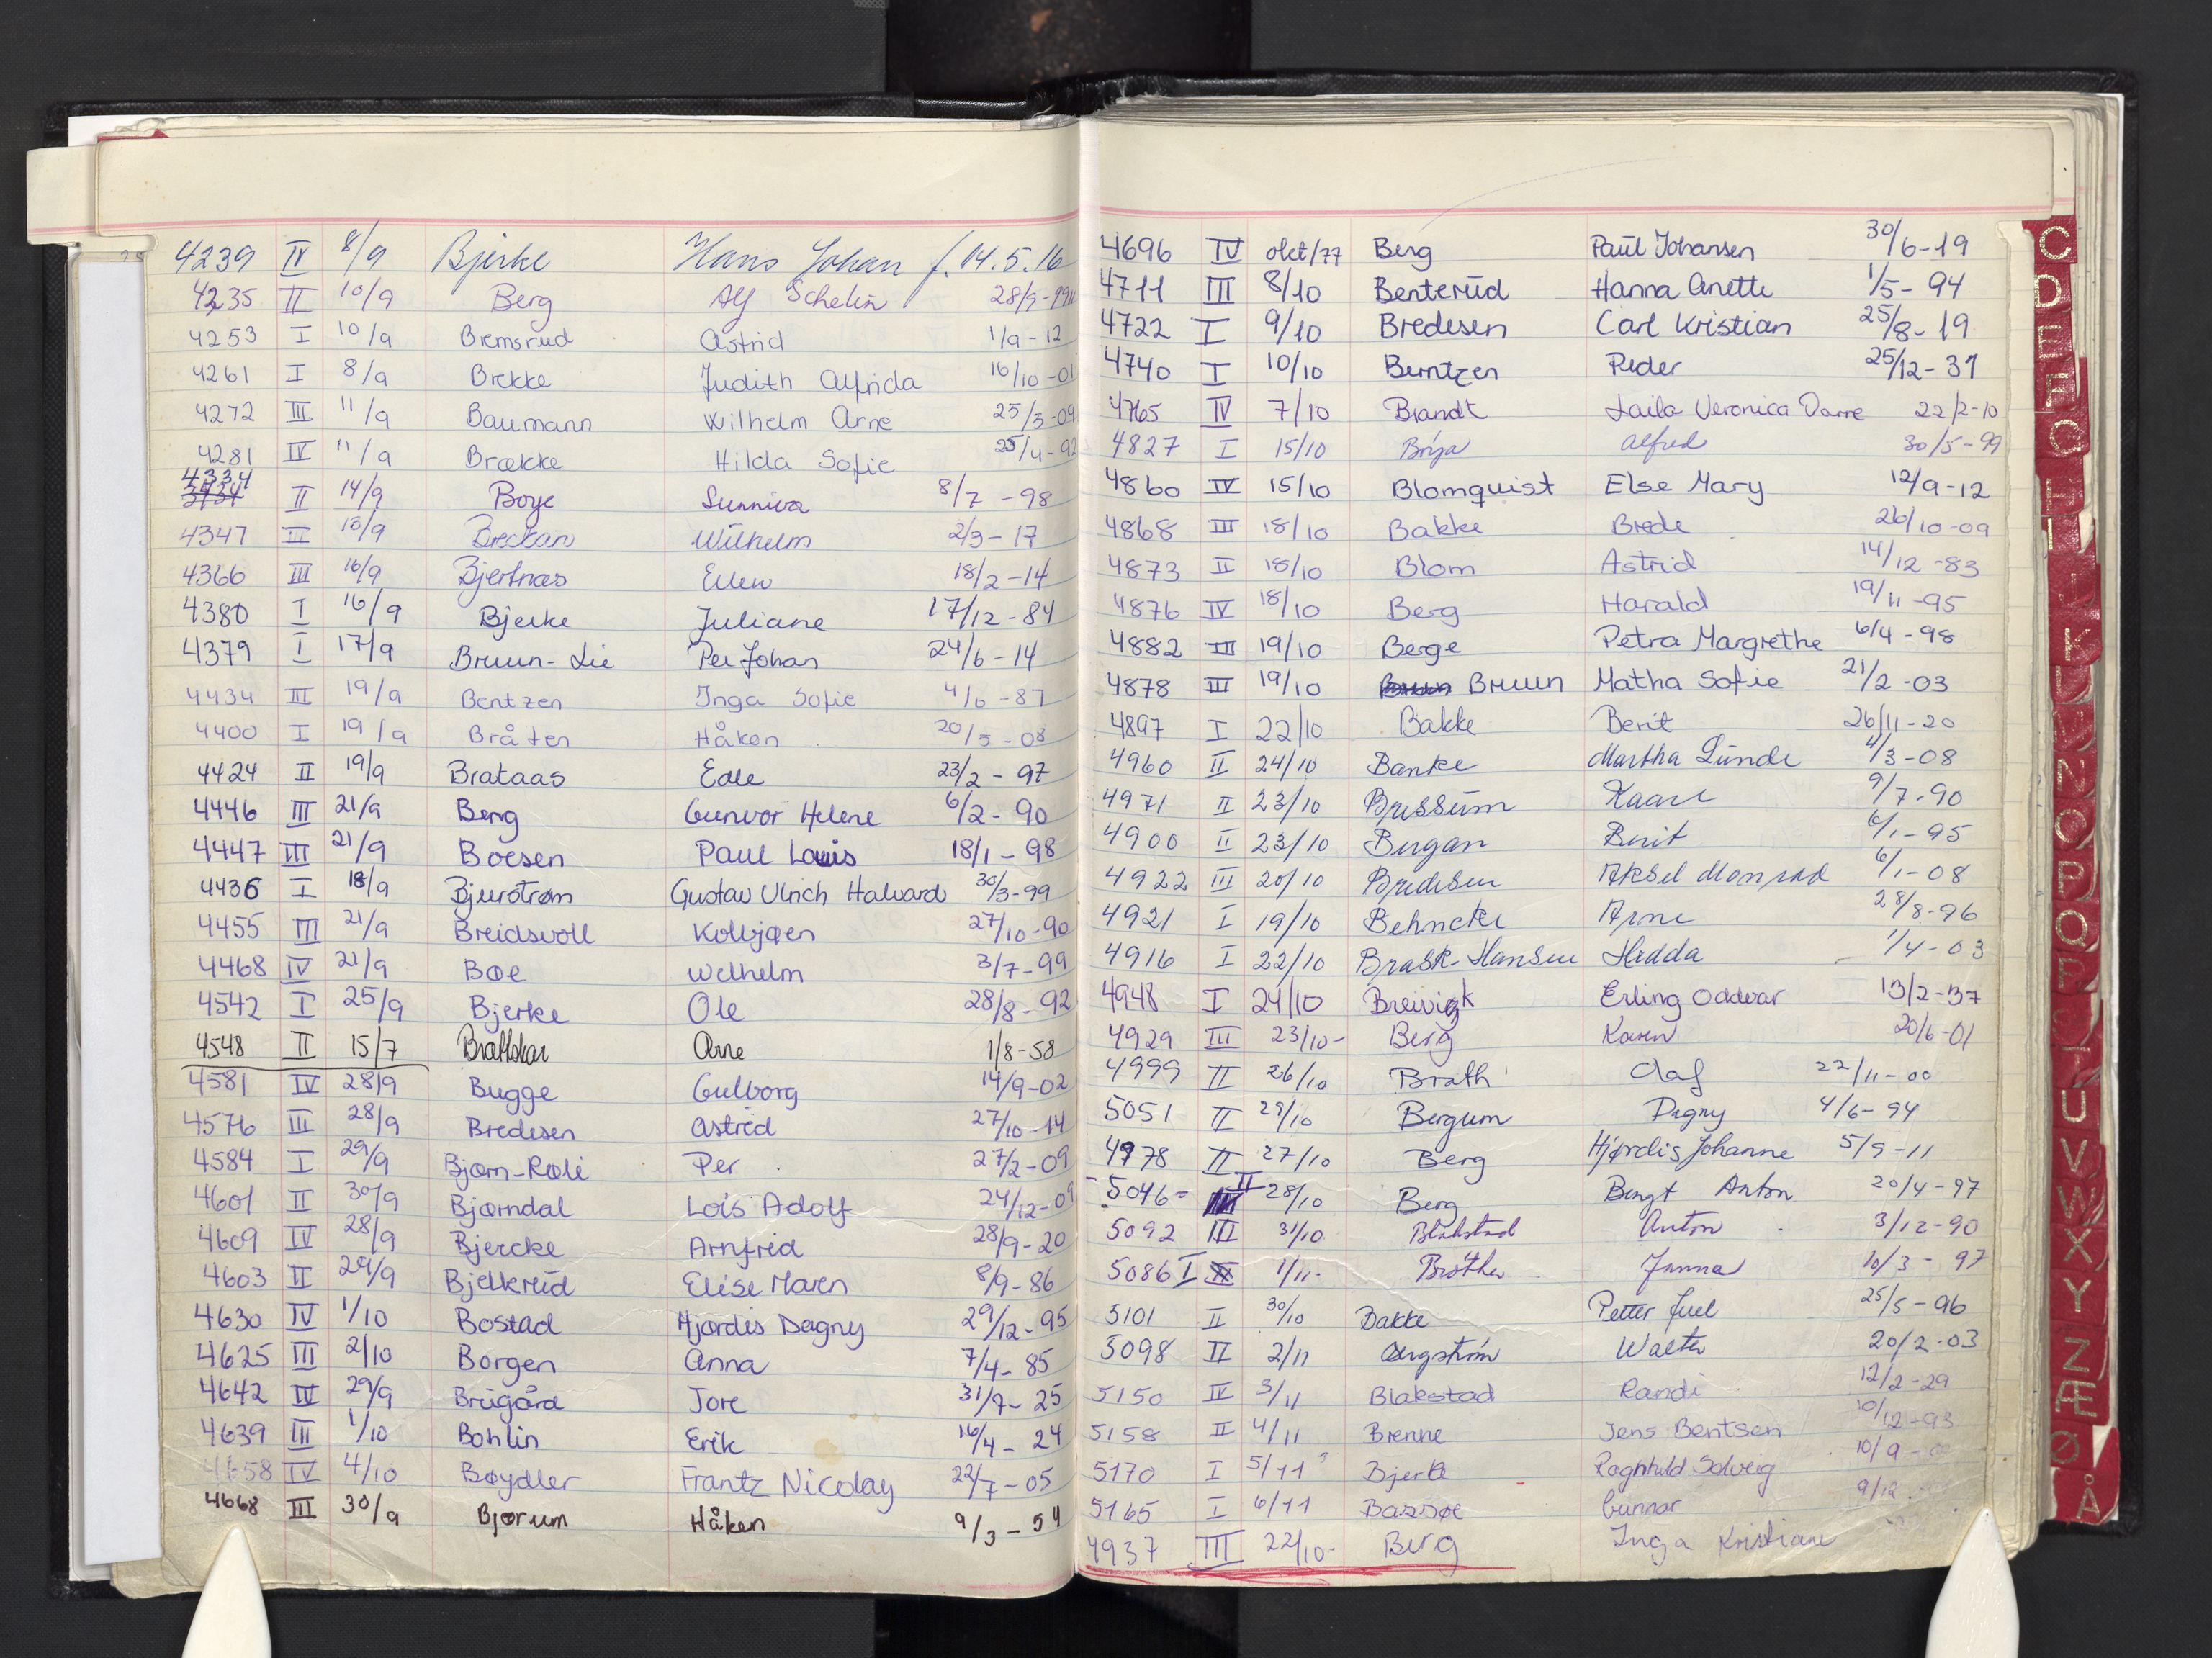 4239 IV 8/9 Bjerke Hans Johan f. 04.5.16
4235 II 10/9 Berg Alf Schelin 28/9-19
4253 I 10/9 Bremsrud Astrid 1/9-12
4261 I 8/9 Brekke Judith Alfrida 16/10-01
4272 III 11/9 Baumann Wilhelm Arne 25/3-09
4281 IV 11/9 Brække Hilda Sofie 25/4-92
4334
3434 II 14/9 Boye Sunniva 8/7-98
4347 III 15/9 Breckan Wilhelm 2/3-17
4366 III 16/9 Bjertnæs Ellen 18/2-14
4380 I 16/9 Bjerke Juliane 17/12-84
4379 I 17/9 Bruun-Lie Per Johan 24/6-14
4434 III 19/9 Bentzen Inga Sofie 4/6-87
4400 I 19/9 Bråten Håkon 20/5-08
4424 II 19/9 Brataas Edle 23/2-97
4446 III 21/9 Berg Gunvor Helene 6/2-90
4447 III 21/9 Boesen Paul Louis 18/1-98
4436 I 18/9 Bjurstrøm Gustav Ulrich Halvard 30/3-99
4455 III 21/9 Breidsvoll Kolbjøen 27/10-90
4468 IV 21/9 Bøe Welhelm 3/7-99
4542 I 25/9 Bjerke Ole 28/8-92
4548 II 15/7 Brattskar Arne 1/8-58
4581 IV 28/9 Bugge Gulborg 14/9-02
4576 III 28/9 Bredesen Astrid 27/10-14
4584 I 29/9 Bjørn-Roli Per 27/2-09
4601 II 30/9 Bjørndal Lois Adolf 24/12-09
4609 IV 28/9 Bjercke Arnfrid 28/9-20
4603 II 29/9 Bjelkrud Elise Maren 8/9-86
4630 IV 1/10 Bostad Hjørdis Dagny 29/12-95
4625 III 2/10 Borgen Anna 7/4-85
4642 IV 29/9 Brugård Tore 31/7-25
4639 III 1/10 Bohlin Erik 16/4-24
4658 IV 4/10 Bøydler Frantz Nicolay 22/7-05
4668 III 30/9 Bjørum Håken 9/3-54
4696 IV okt/77 Berg Paul Johansen 30/6-19
4711 III 8/10 Benterud Hanna Anette 1/5-94
4722 I 9/10 Bredesen Carl Kristian 25/8-19
4740 I 10/10 Berntzen Peder 25/12-31
4765 IV 7/10 Brandt Laila Veronica Dorre 22/2-10
4827 I 15/10 Alfred 30/5-99
4860 IV 15/10 Blomquist Else Mary 12/9-12
4868 III 18/10 Bakke Brede 26/10-09
4873 II 18/10 Blom Astrid 14/12-83
4876 IV 18/10 Berg Harald 19/11-95
4882 III 19/10 Berge Petra Margrethe 6/4-98
4878 III 19/10 Bruun Matha Sofie 21/2-03
4897 I 22/10 Bakke Berit 26/11-20
4960 II 24/10 Banke Martha Lunde 4/3-08
4971 II 23/10 Bressum Kaare 9/7-90
4900 II 23/10 Bergan Berit 6/1-95
4922 III 20/10 Bredesen Aksel Monrad 6/1-08
4921 I 19/10 Behncke Arne 28/8-96
4916 I 22/10 Brask-Hansen Hedda 1/4-03
4948 I 24/10 Breivik Erling Oddvar 13/2-37
4929 III 23/10- Berg Karen 20/6-01
4999 II 26/10 Brath Olaf 22/11-00
5051 II 29/10 Bergum Dagny 4/6-94
4978 II 27/10 Berg Hjørdis Johanne 5/9-11
-5046- II 28/10 Berg Bengt Anton 20/4-97
5092 III 31/10 Blakstad Anton 3/12-90
5086 I 1/11- Brøther Janna 10/3-97
5101 II 30/10 Bakke Petter Juel 25/5-96
5098 II 2/11 Walter 20/2-03
5150 IV 3/11 Blakstad Randi 12/2-29
5158 II 4/11 Brenne Jens Bentsen 10/12-93
5170 I 5/11 Bjerke Ragnhild Solveig 10/9-
5165 I 6/11 Bassøe Gunnar 9/12
4937 III 22/10- Berg Inga Kristiane
C
D
E
F
G
H
I
J
K
L
M
N
O
P
Q
R
S
T
U
V
W
X
Y
Z
Æ
Ø
Å